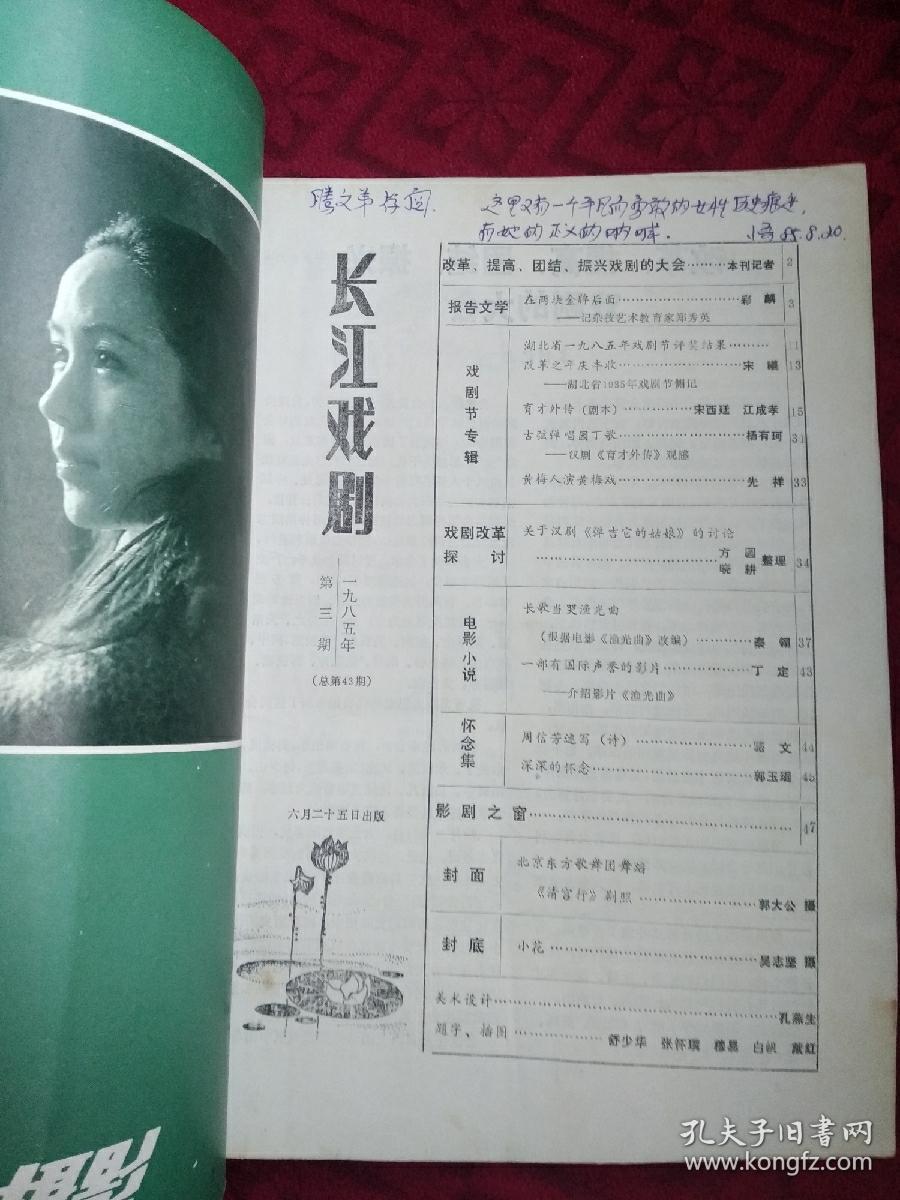 这里又有一个平凡而勇敢的女性
有她的正义的呐喊.
85.8.20.
长江戏剧
一九八五年
第三期
（总第43期）
六月二十五日出版
改革、提高、团结、振兴戏剧的大会………本刊记者 2
报告文学
在两块金牌后面…………………彩麟 3
——记杂技艺术教育家郑秀英
戏剧节专辑
湖北省一九八五年戏剧节评奖结果……… 11
改革之年庆丰收……………宋曦 13
——湖北省1985年戏剧节侧记
育才外传（剧本）…………宋西廷 江成孝 15
古弦弹唱园丁歌……………杨有珂 31
——汉剧《育才外传》观感
黄梅人演黄梅戏……………先祥 33
戏剧改革探讨
关于汉剧《弹吉它的姑娘》的讨论
……………方圆 晓耕 整理 34
电影小说
长歌当哭渔光曲
（根据电影《渔光曲》改编）………秦翎 37
一部有国际声誉的影片…………丁定 43
——介绍影片《渔光曲》
怀念集
周信芳速写（诗）……………骆文 44
深深的怀念……………郭玉瑶 45
影剧之窗…………… 47
封面
北京东方歌舞团舞蹈
《清宫行》剧照……………郭大公 摄
封底
小花……………吴志坚 摄
美术设计……………孔燕生
题字、插图……………舒少华 张怀瑛 穆晨 白帆 戴红
孔夫子旧书网
www.kongfz.com